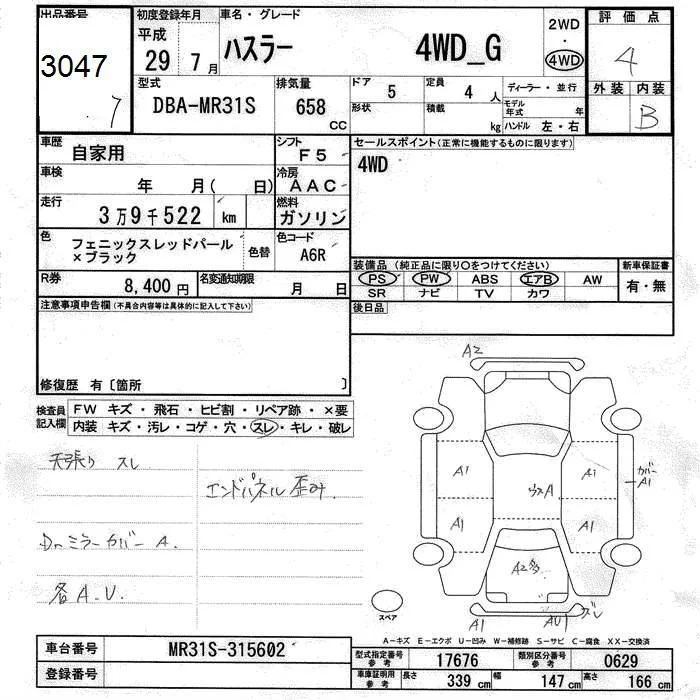 出品番号
3047
7
初度登録年月
平成
29 7月
車名・グレード
ハスラー 4WD_G
2WD
・
4WD
評価点
4
外装 内装
B
型式
DBA-MR31S
排気量
658
CC
ドア 5
形状
定員 4 人
積載 kg
ディーラー・並行
モデル年式 年
ハンドル 左・右
車歴
自家用
シフト
F5
車検
年 月( 日)
冷房
AAC
走行
3万9千522 km
燃料
ガソリン
色
フェニックスレッドパール
×ブラック
色替
色コード
A6R
R券
8,400円
名変通知期限
月 日
セールスポイント(正常に機能するものに限ります)
4WD
装備品(純正品に限り〇をつけてください)
PS PW ABS エアB AW
SR ナビ TV カワ
新車保証書
有・無
後日品
注意事項申告欄(不具合内容等は具体的に記入して下さい)
修復歴 有〔箇所 〕
検査員
記入欄
FW キズ・飛石・ヒビ割・リペア跡・×要
内装 キズ・汚レ・コゲ・穴・スレ・キレ・破レ
天張り スレ
エンドパネル歪み.
Drミラーカバー A.
各A.U.
A2
A1
A1
ウスA
A1
A1
カバー
A1
A2多
A1
AU1
ズレ
スペア
A-キズ E-エクボ U-凹み W-補修跡 S-サビ C-腐食 XX-交換済
車台番号 MR31S-315602
登録番号
型式指定番号
参考
17676
類別区分番号
参考
0629
車庫証明用
参考
長さ 339 cm 幅 147 cm 高さ 166 cm